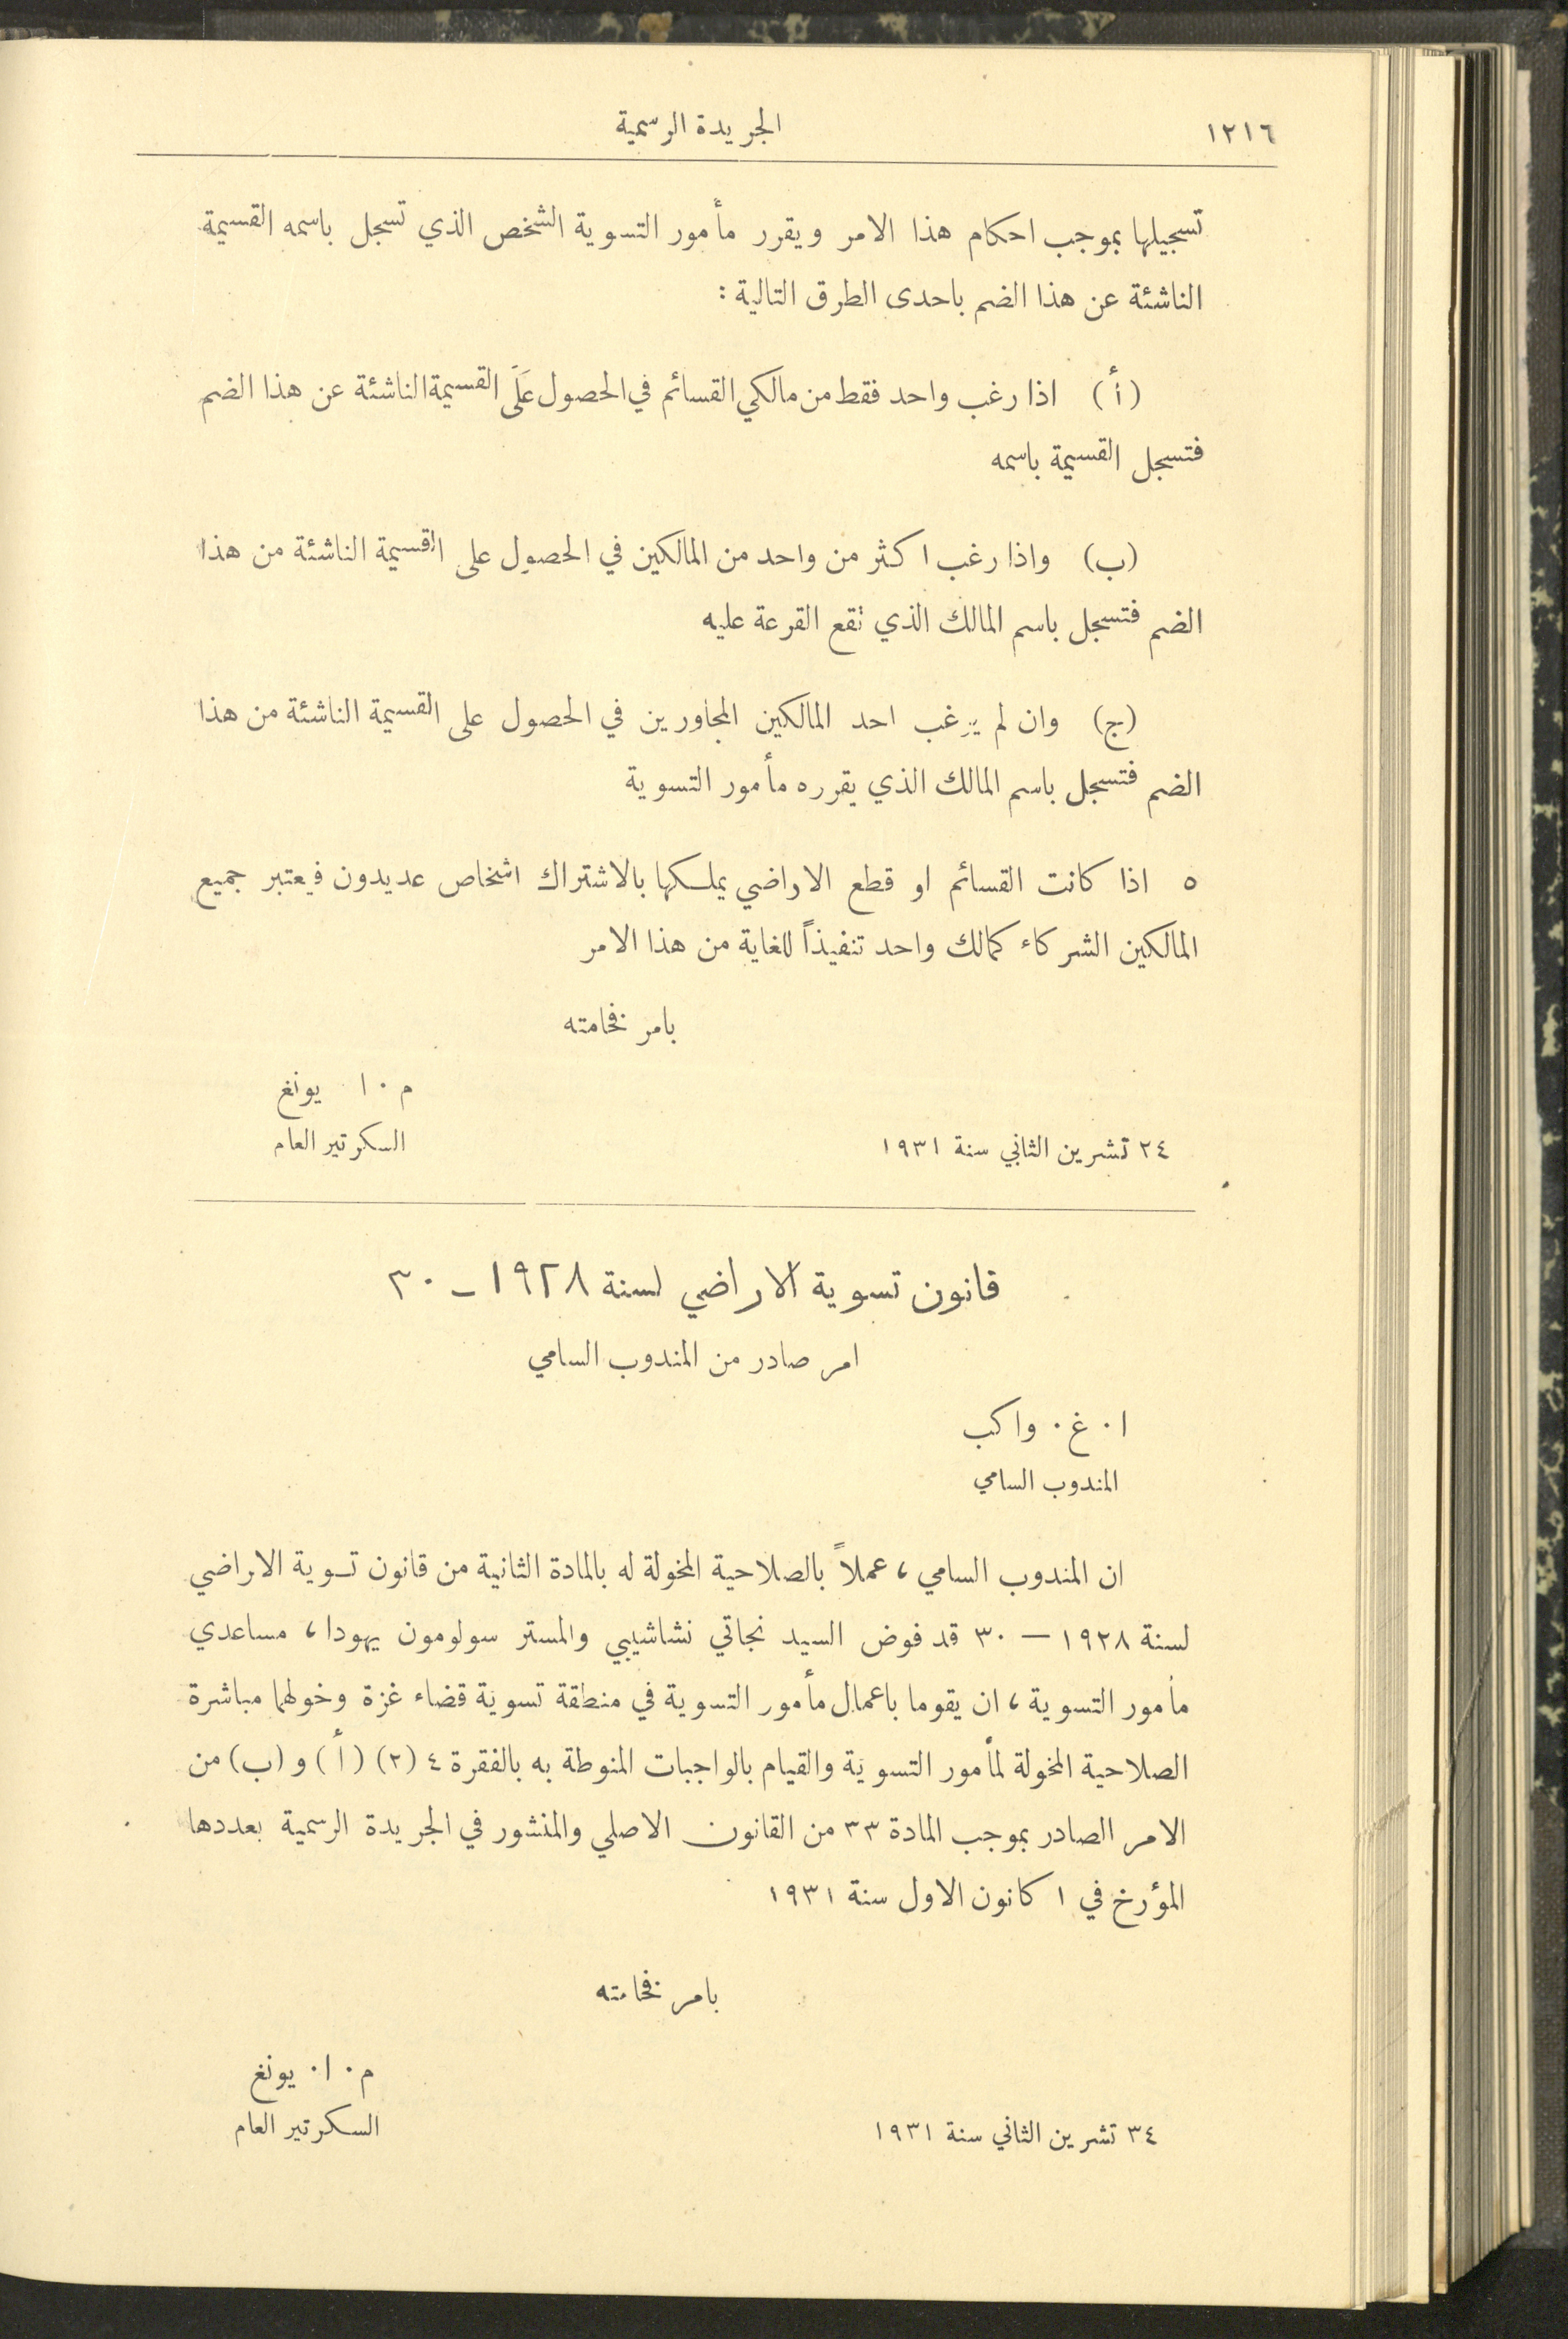 ١٢١٦
الجريدة الرسمية
تسجيلها بموجب احكام هذا الامر ويقرر مأمور التسوية الشخص الذي تسجل باسمه القسيمة
الناشئة عن هذا الضم باحدى الطرق التالية :
(أ) اذا رغب واحد فقط من مالكي القسائم في الحصول عَلَى القسيمة الناشئة عن هذا الضم
فتسجل القسيمة باسمه
(ب) واذا رغب اكثر من واحد من المالكين في الحصول على القسيمة الناشئة من هذا
الضم فتسجل باسم المالك الذي تقع القرعة عليه
(ج) وان لم يرغب احد المالكين المجاورين في الحصول على القسيمة الناشئة من هذا
الضم فتسجل باسم المالك الذي يقرره مأمور التسوية
٥ اذا كانت القسائم او قطع الاراضي يملكها بالاشتراك اشخاص عديدون فيعتبر جميع
المالكين الشركاء كمالك واحد تنفيذاً للغاية من هذا الامر
بامر فخامته
م ٠ ا ٠ يونغ
٢٤ تشرين الثاني سنة ١٩٣١ السكرتير العام
قانون تسوية الاراضي لسنة ١٩٢٨ – ٣٠
امر صادر من المندوب السامي
ا ٠ غ ٠ واكب
المندوب السامي
ان المندوب السامي ، عملاً بالصلاحية المخولة له بالمادة الثانية من قانون تسوية الاراضي
لسنة ١٩٢٨ — ٣٠ قد فوض السيد نجاتي نشاشيبي والمستر سولومون يهودا ، مساعدي
مأمور التسوية ، ان يقوما باعمال مأمور التسوية في منطقة تسوية قضاء غزة وخولهما مباشرة
الصلاحية المخولة لمأمور التسوية والقيام بالواجبات المنوطة به بالفقرة ٤ (٢) (أ) و (ب) من
الامر الصادر بموجب المادة ٣٣ من القانون الاصلي والمنشور في الجريدة الرسمية بعددها
المؤرخ في ١ كانون الاول سنة ١٩٣١
بامر فخامته
م ٠ ا ٠ يونغ
٣٤ تشرين الثاني سنة ١٩٣١ السكرتير العام